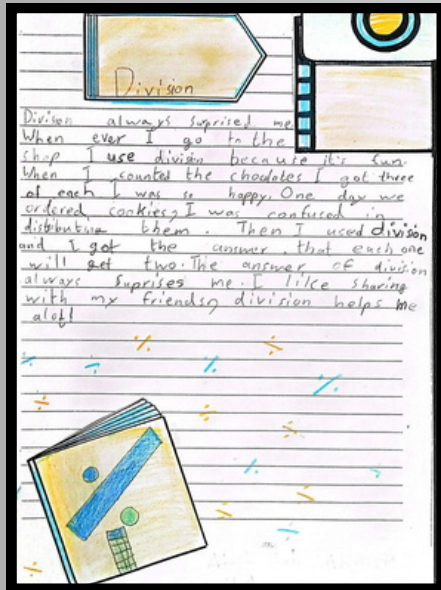 Division
Divisen always suprised me
When ever I go to the
shop I use divisin because it's fun.
When I counted the choclates I got three
of each I was so happy. One day we
ordered cookies, I was confused in
distributing them. Then I used division
and I got the answer, that each one
will get two. The answer of division
always Suprises me. I like sharing
with my friends, division helps me
alot!